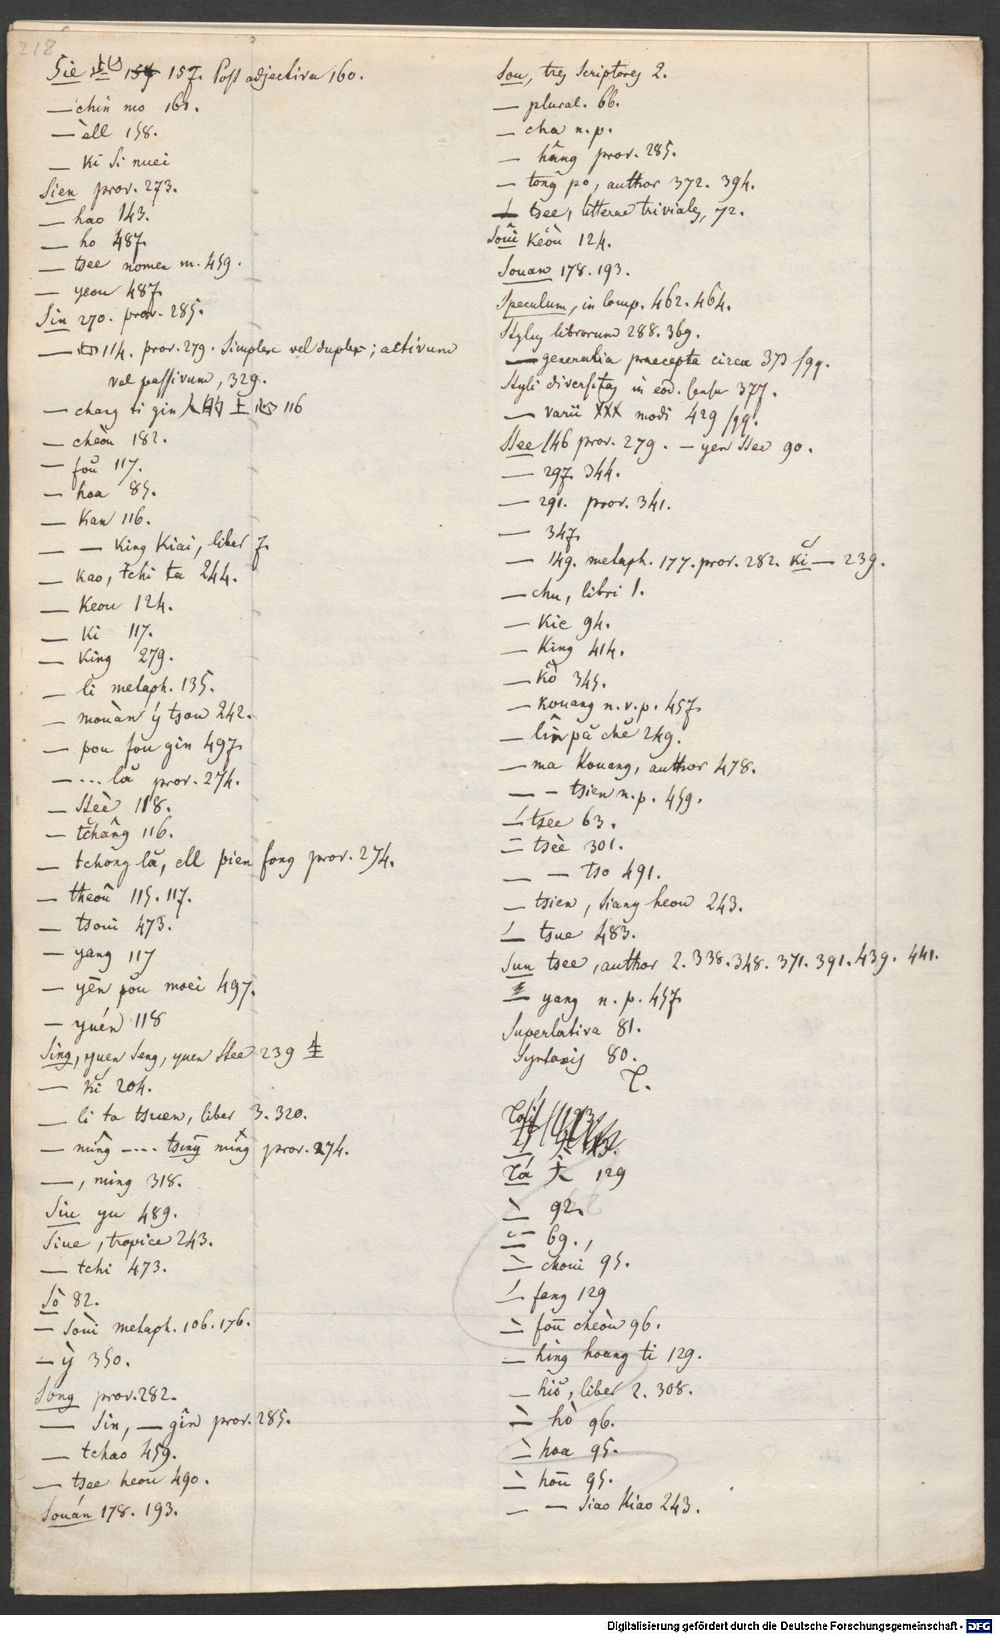 218
Sie 些 154 157. Post adjectiva 160.
— chin mo 161.
— èll 158.
— ki si nuei
Sien prov. 273.
— hao 143.
— ho 487.
— tsee nomen m. 459.
— yeou 487.
Sin 270. prov. 285.
— 心 114. prov. 279. Simplex vel duplex; activum
vel passivum, 329.
— chang ti gin 人的上心 116
— cheòu 182.
— foŭ 117.
— hoa 85.
— Kan 116.
— — King Kiai, liber 7.
— kao, tchi ta 244.
— Keou 124.
— Ki 117.
— King 279.
— li metaph. 135.
— mouàn ý tsou 242.
— pou fou gin 497.
— ... lă prov. 274.
— Sseè 118.
— tchâng 116.
— tchong lă, ell pien fong prov. 274.
— theoû 115. 117.
— tsoui 473.
— yang 117
— yēn pŏu moei 497.
— yuén 118
Sing, yuen Seng, yuen Ssee 239 生
— Ki 204.
— li ta tsuen, liber 3. 320.
— nûng — .... tsing nûng prov. 274.
— , ming 318.
Siu yu 489.
Siue, tropice 243.
— tchi 473.
Sò 82.
— Soùi metaph. 106. 176.
— ỳ 350.
Song prov. 282.
— Sin, — gîn prov. 285.
— tchao 459.
— tsee heou 490.
Souán 178. 193.
Sou, tres Scriptores 2.
— plural. 66.
— cha n. p.
— hâng prov. 285.
— tong po, author 372. 394.
— tsee, litterae triviales, 72.
Soûi Keòu 124.
Souan 178. 193.
Speculum, in comp. 462. 464.
Stylus librorum 288. 369.
— generalia praecepta circa 373 sqq.
Styli diversitas in eod. sensu 377.
— varii XXX modi 429 sqq.
Ssee 146 prov. 279. — yen Ssee 90.
— 297. 344.
— 291. prov. 341.
— 347.
— 149. metaph. 177. prov. 282. Ki — 239.
— chu, libri 1.
— Kie 94.
— King 414.
— Kŏ 345.
— Kouang n. v. p. 457.
— lîn pă chĕ 249.
— ma Kouang, author 478.
— — tsien n. p. 459.
— tsee 63.
— tsèe 301.
— — tso 491.
— tsien, Siang heou 243.
— tsue 483.
Sun tsee, author 2. 338. 348. 371. 391. 439. 441.
— yang n. p. 457.
Superlativa 81.
Syntaxis 80.
T.
Tá 大 129
— 92.
— 69.,
— choui 95.
— fang 129
— foū cheòu 96.
— hing hoang ti 129.
— hiŏ, liber 2. 308.
— hò 96.
— hoa 95.
— hoū 95.
— — Siao Kiao 243.
Digitalisierung gefördert durch die Deutsche Forschungsgemeinschaft - DFG